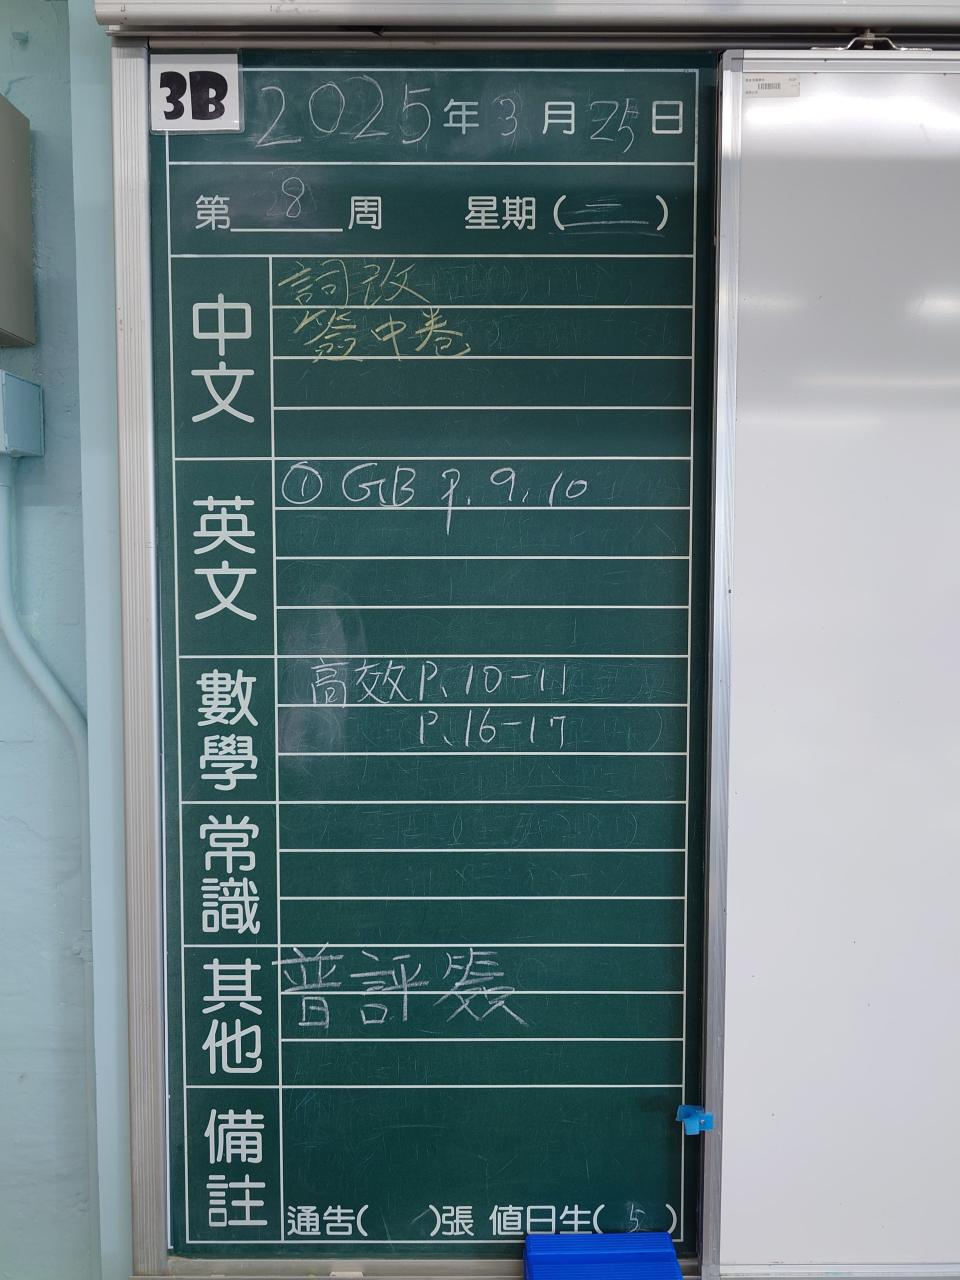 3B
2025年3月25日
第8周 星期(二)
中文
詞改
簽中卷
英文
① GB P. 9, 10
數學
高效 P. 10-11
P. 16-17
常識
其他
普評簽
備註
通告( )張 值日生(5)